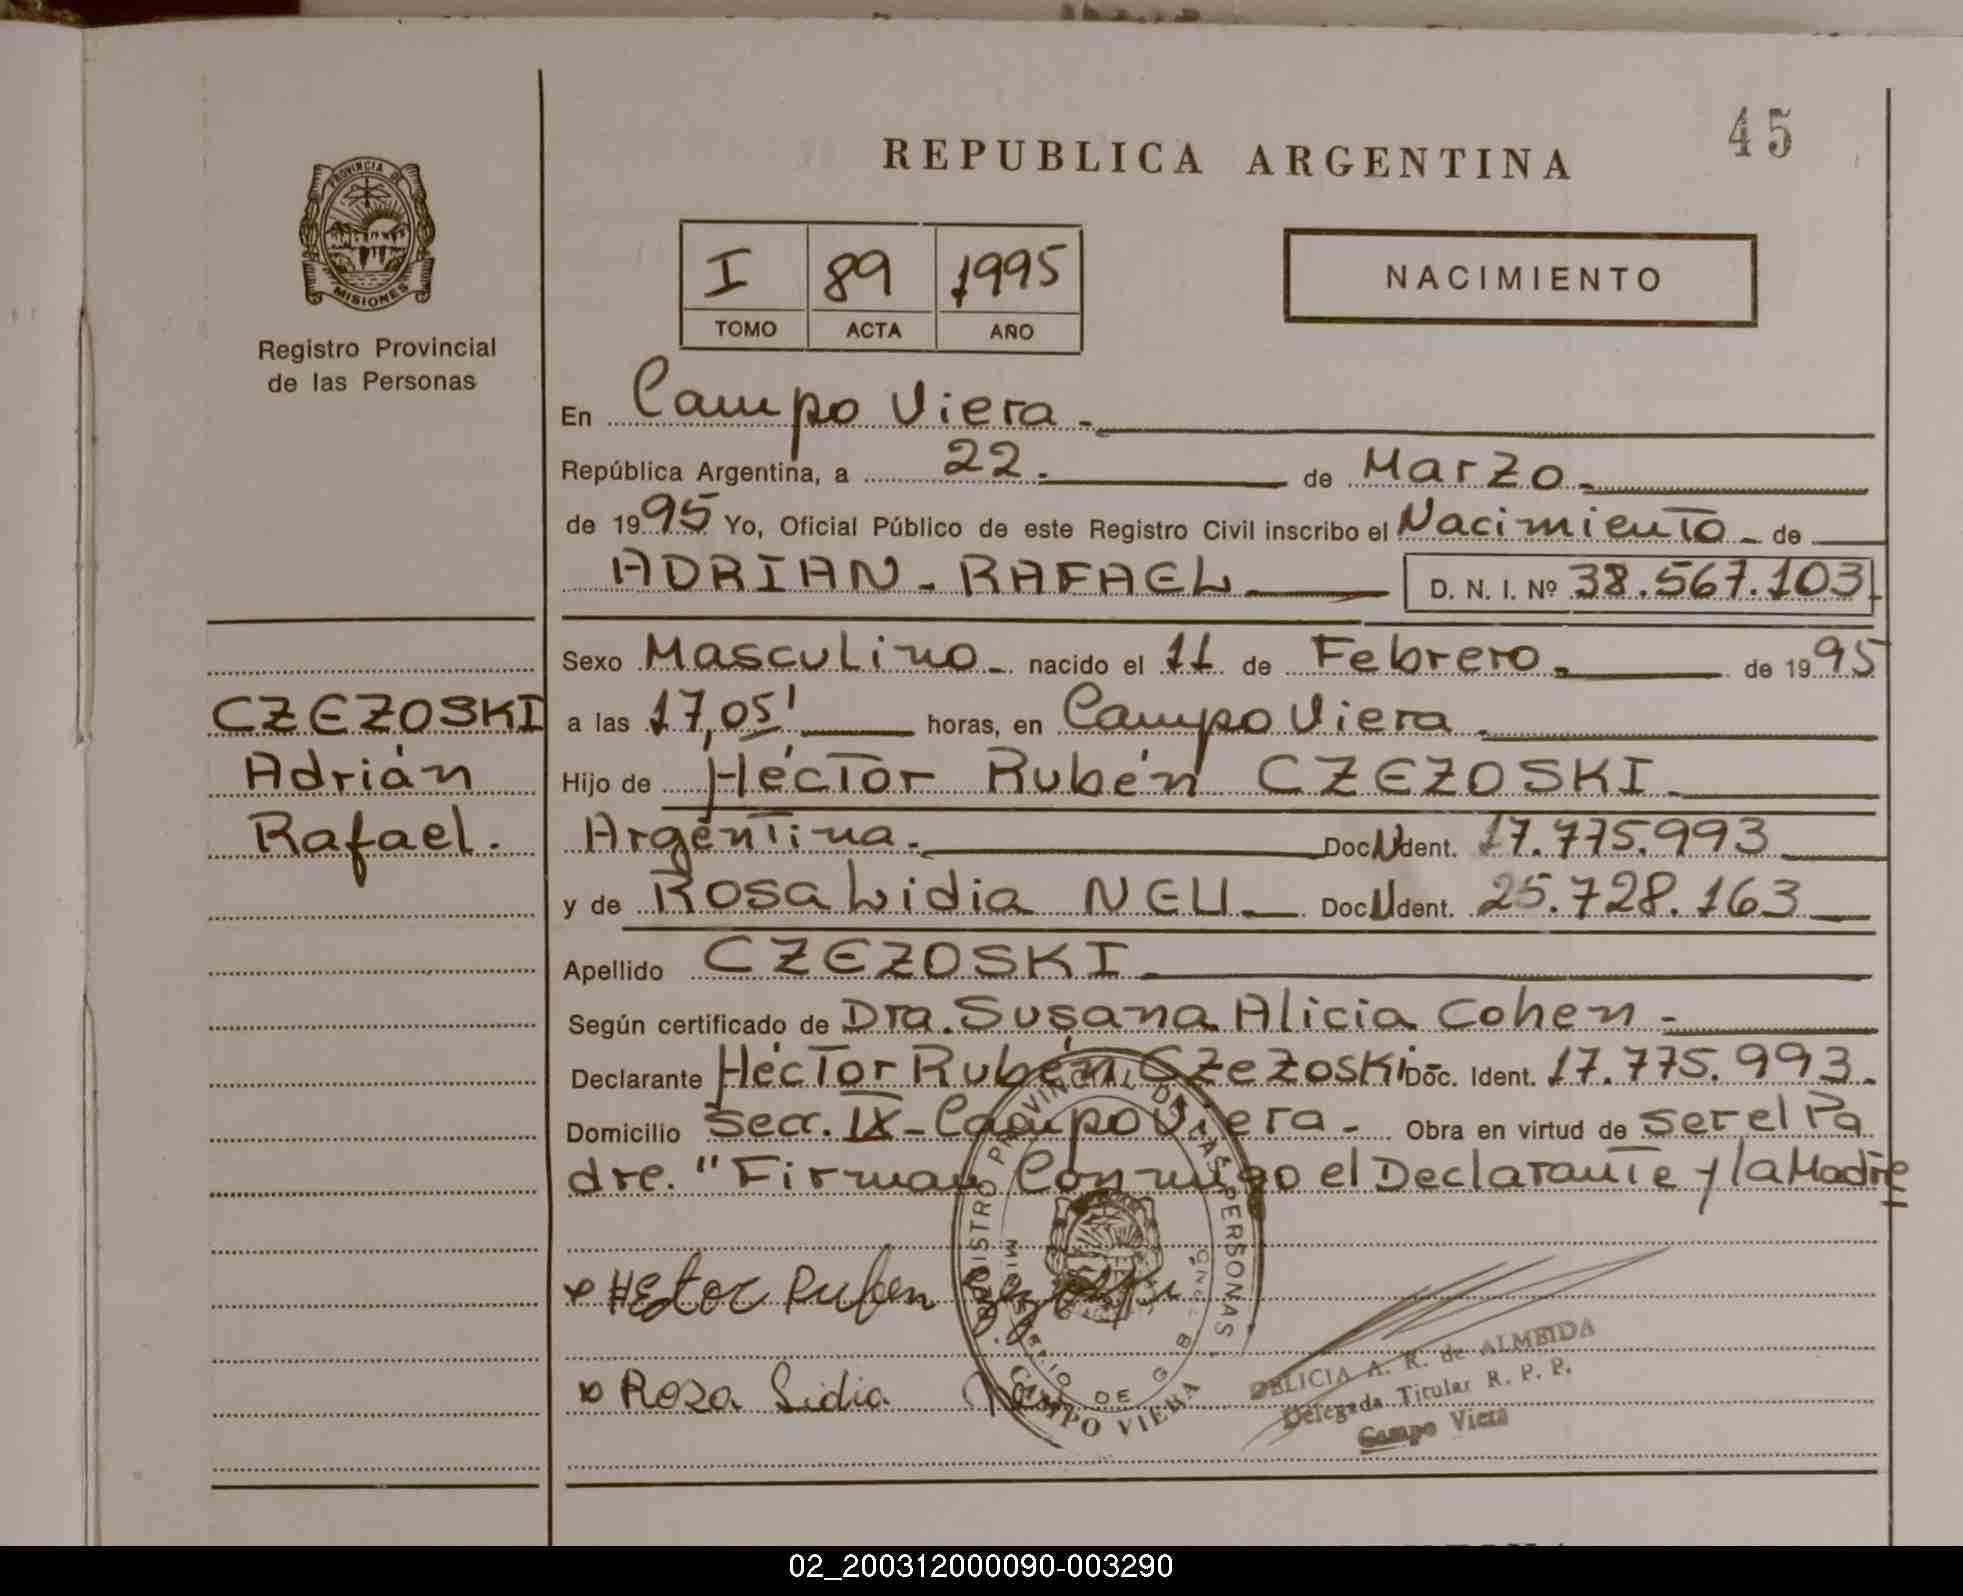 45
REPUBLICA ARGENTINA
PROVINCIA DE
MISIONES
Registro Provincial
de las Personas
I 89 1995
TOMO ACTA AÑO
NACIMIENTO
En Campo Viera.
República Argentina, a 22. de Marzo.
de 1995 Yo, Oficial Público de este Registro Civil inscribo el Nacimiento de
ADRIAN - RAFAEL D. N. I. Nº 38.567.103
Sexo Masculino nacido el 11 de Febrero. de 1995
CZEZOSKI
Adrián
Rafael.
a las 17,05' horas, en Campo Viera.
Hijo de Héctor Rubén CZEZOSKI.
Argentina. Doc. Ident. 17.775.993
y de Rosa Lidia NEU Doc. Ident. 25.728.163
Apellido CZEZOSKI
Según certificado de Dra. Susana Alicia Cohen -
Declarante Héctor Rubén Czezoski Doc. Ident. 17.775.993.
Domicilio Secc. IX - Campo Viera. Obra en virtud de ser el Pa
dre. "Firman Conmigo el Declarante y la Madre
Hector Ruben
Rosa Lidia
REGISTRO PROVINCIAL DE LAS PERSONAS
CAMPO VIERA
DELICIA A. R. de ALMEIDA
Delegada Titular R. P. P.
Campo Viera
02_200312000090-003290